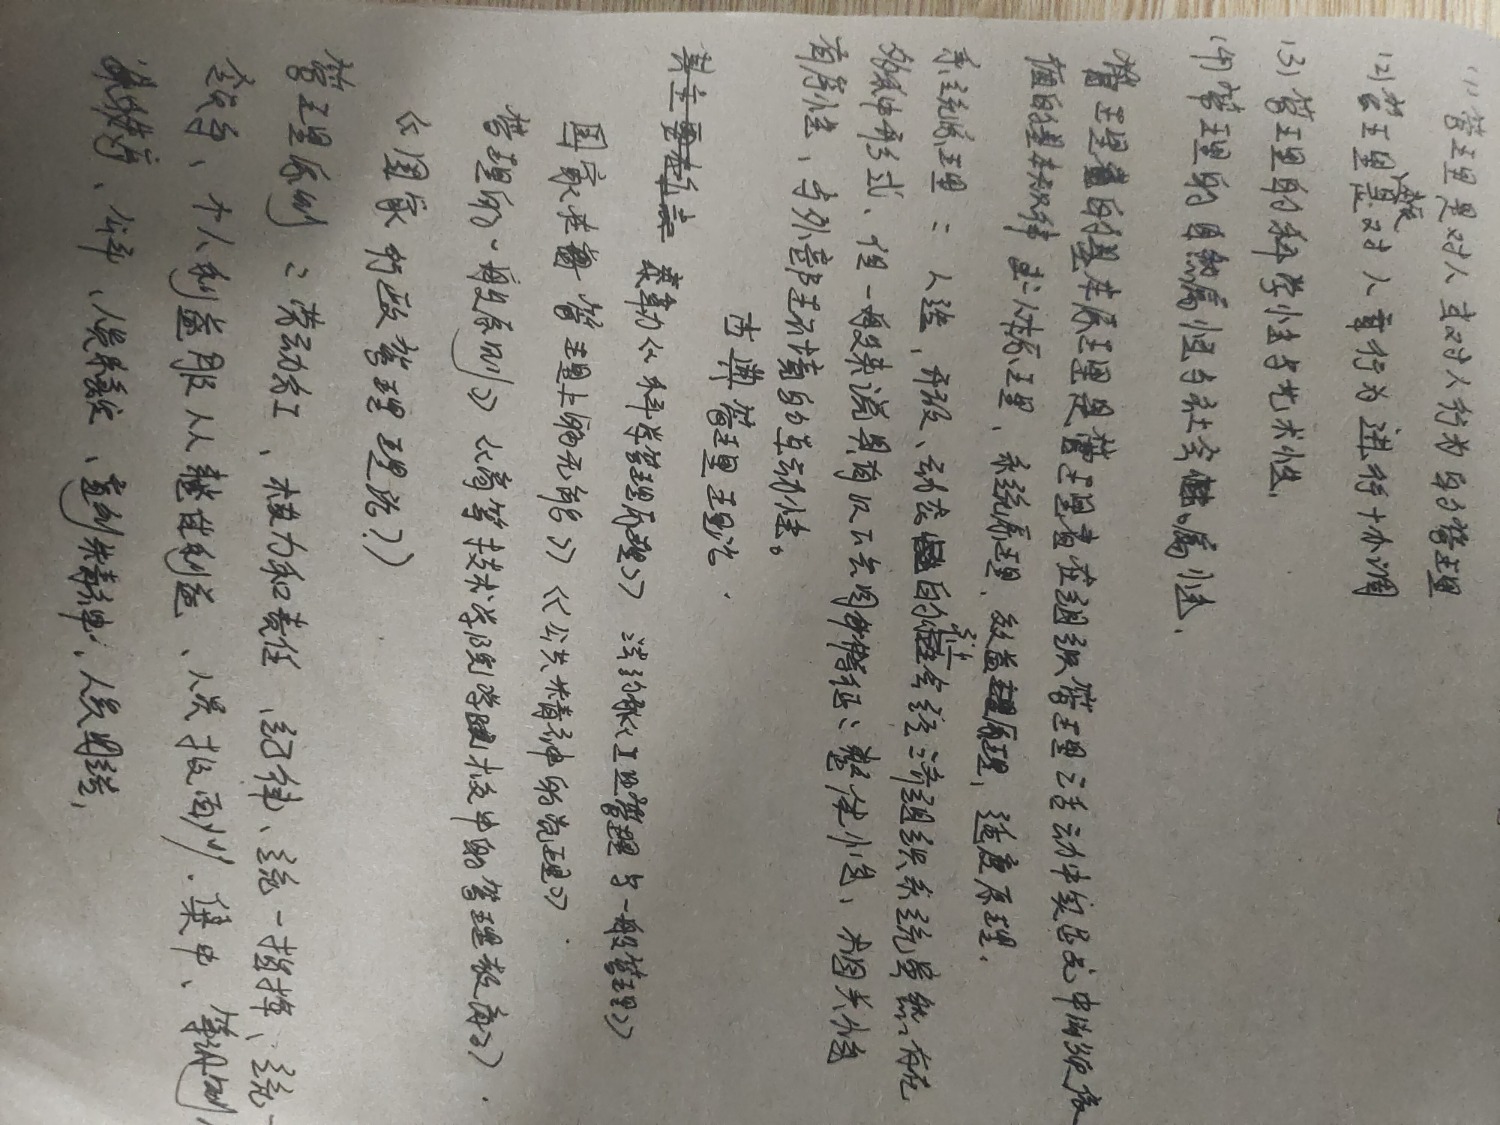 (1)管理是对人或对人行为的管理
(2)管理是对人章行为进行协调
(3)管理的科学性与艺术性.
(4)管理的自然属性与社会属性.
管理的基本原理是管理者在组织管理活动中实践中必须依
循的基本规律 人本原理、系统原理、效益原理、适度原理.
系统原理:人造,开放、动态的社会经济组织系统虽然有无
数种形式、但一般来说具有以下共同特征:整体性、相关性
有序性、与外部环境的互动性。
古典管理理论.
泰罗《科学管理原理》 法约尔《工业管理与一般管理》
《公共精神的觉醒》
管理的一般原则》《高等技术学院学校中的管理教育》
《国家行政管理理论》
管理原则:劳动分工、权力和责任、纪律、统一指挥、统一
领导、个人利益服从整体利益、人员报酬.集中、等级制
秩序、公平、人员稳定、首创精神、人员团结,